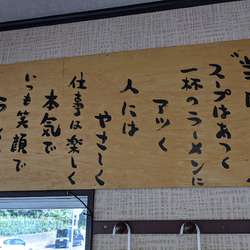 スープはあつく
一杯のラーメンに
アツく
人には
やさしく
仕事は楽しく
本気で
いつも笑顔で